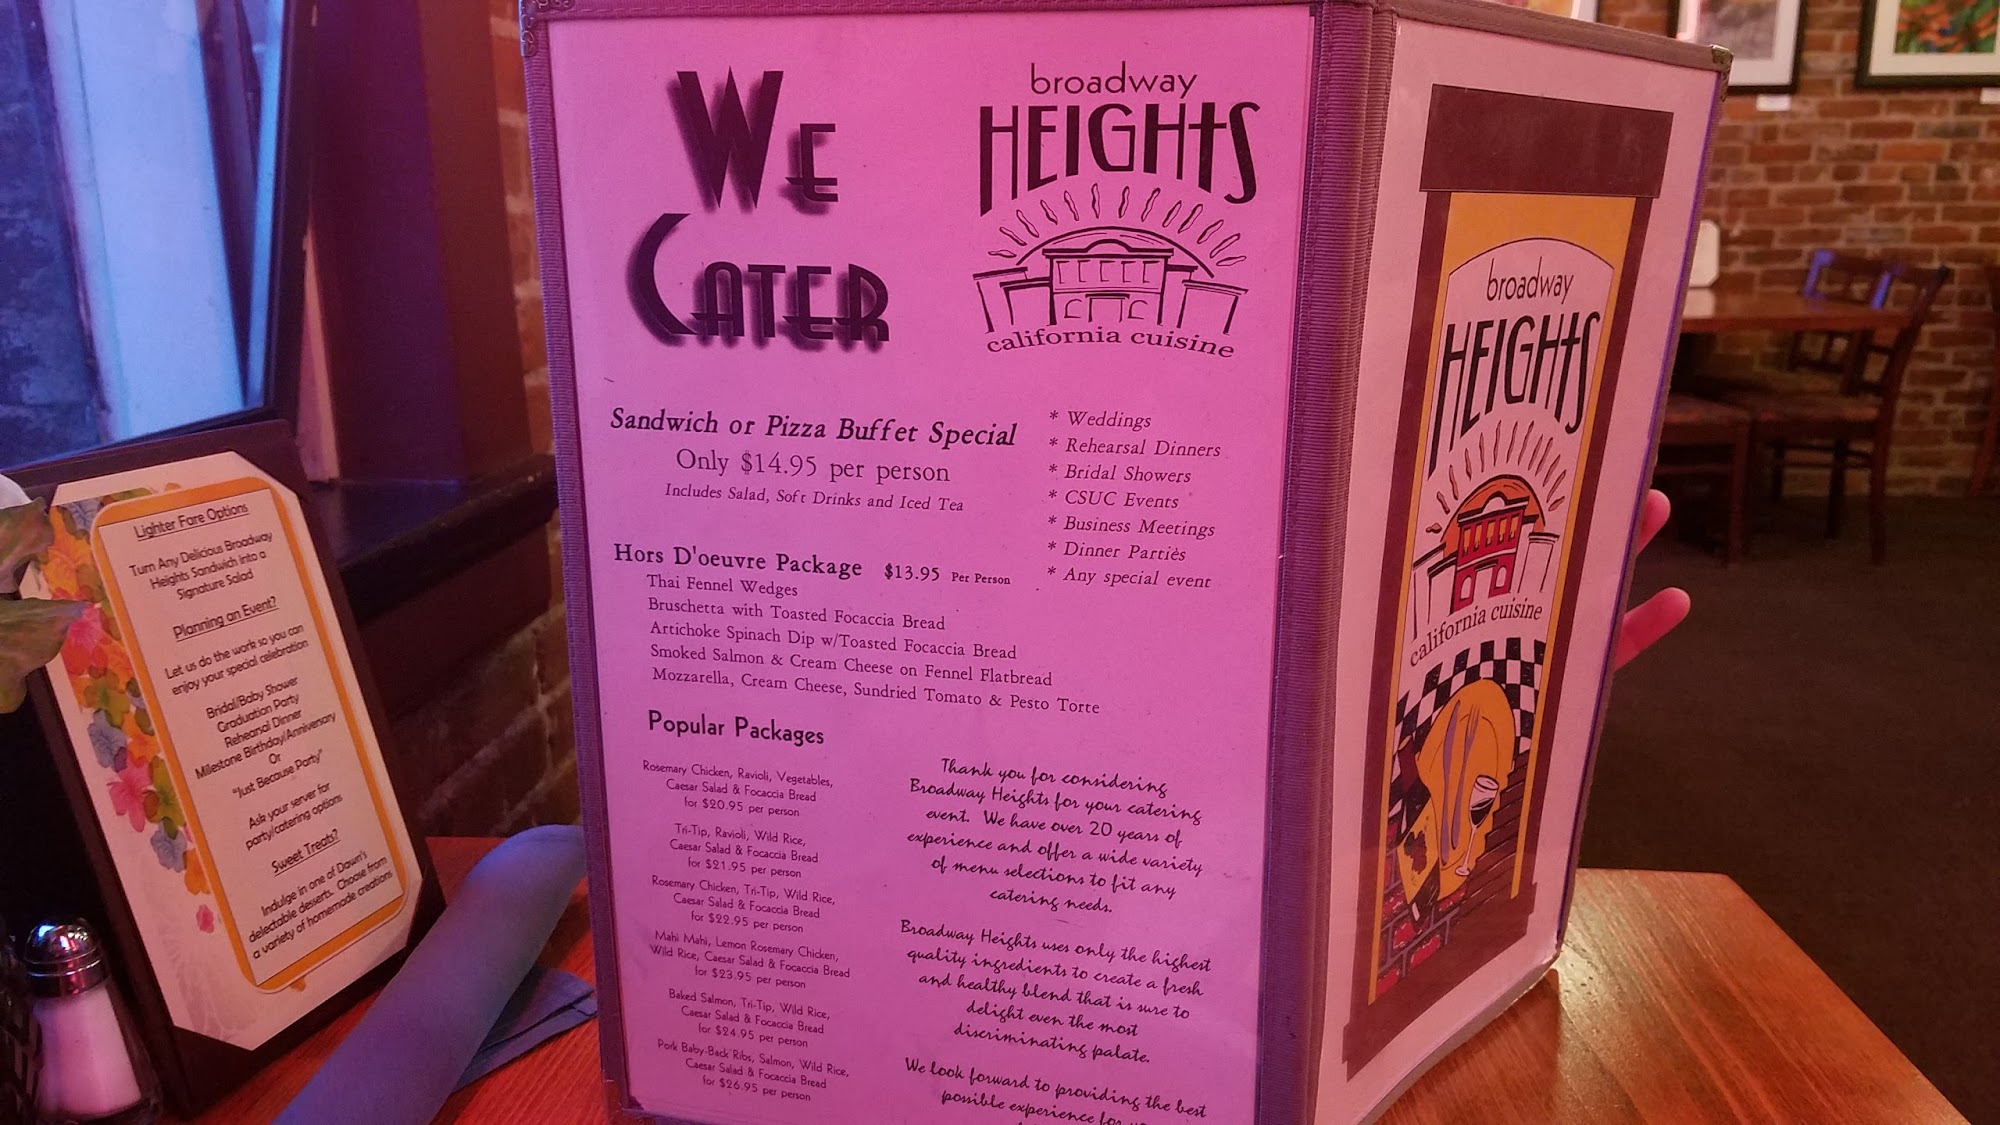 Lighter Fare Options
Turn Any Delicious Broadway
Heights Sandwich into a
Signature Salad
Planning an Event?
Let us do the work so you can
enjoy your special celebration
Bridal/Baby Shower
Graduation Party
Rehearsal Dinner
Milestone Birthday/Anniversary
Or
"Just Because Party"
Ask your server for
party/catering options
Sweet Treats?
Indulge in one of Dawn's
delectable desserts. Choose from
a variety of homemade creations
WE
CATER
broadway
HEIGHTS
california cuisine
Sandwich or Pizza Buffet Special
Only $14.95 per person
Includes Salad, Soft Drinks and Iced Tea
* Weddings
* Rehearsal Dinners
* Bridal Showers
* CSUC Events
* Business Meetings
* Dinner Parties
* Any special event
Hors D'oeuvre Package $13.95 Per Person
Thai Fennel Wedges
Bruschetta with Toasted Focaccia Bread
Artichoke Spinach Dip w/Toasted Focaccia Bread
Smoked Salmon & Cream Cheese on Fennel Flatbread
Mozzarella, Cream Cheese, Sundried Tomato & Pesto Torte
Popular Packages
Rosemary Chicken, Ravioli, Vegetables,
Caesar Salad & Focaccia Bread
for $20.95 per person
Tri-Tip, Ravioli, Wild Rice,
Caesar Salad & Focaccia Bread
for $21.95 per person
Rosemary Chicken, Tri-Tip, Wild Rice,
Caesar Salad & Focaccia Bread
for $22.95 per person
Mahi Mahi, Lemon Rosemary Chicken,
Wild Rice, Caesar Salad & Focaccia Bread
for $23.95 per person
Baked Salmon, Tri-Tip, Wild Rice,
Caesar Salad & Focaccia Bread
for $24.95 per person
Pork Baby-Back Ribs, Salmon, Wild Rice,
Caesar Salad & Focaccia Bread
for $26.95 per person
Thank you for considering
Broadway Heights for your catering
event. We have over 20 years of
experience and offer a wide variety
of menu selections to fit any
catering needs.
Broadway Heights uses only the highest
quality ingredients to create a fresh
and healthy blend that is sure to
delight even the most
discriminating palate.
We look forward to providing the best
possible experience for
broadway
HEIGHTS
california cuisine